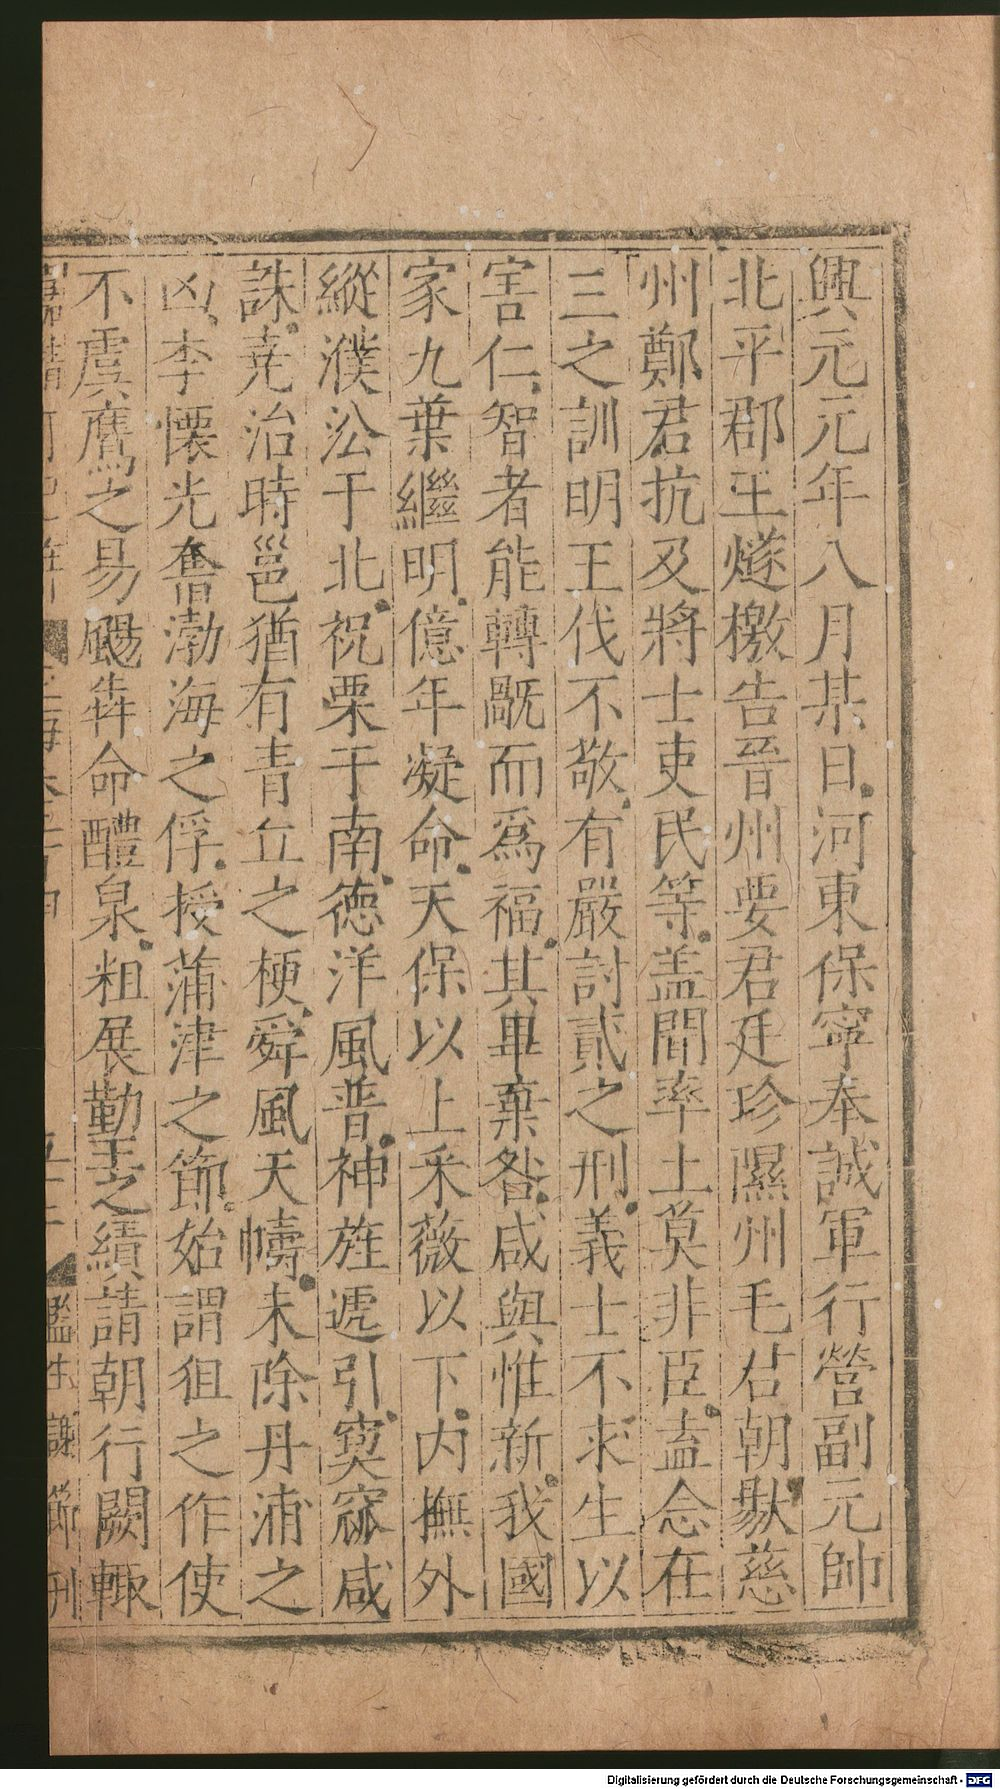 興元元年八月某日河東保寧奉誠軍行營副元帥
北平郡王燧檄告晉州要君廷珍隰州毛君朝敭慈
州鄭君抗及將士吏民等盖聞率土莫非臣盍念在
三之訓明王伐不敬有嚴討貳之刑義士不求生以
害仁智者能轉既而爲福其畢棄咎咸與惟新我國
家九葉繼明億年凝命天保以上采薇以下内撫外
縱濮沿于北祝栗于南徳洋風普神旌遞引窫窳咸
誅尭治時邕猶有青丘之梗舜風天幬未除丹浦之
凶李懷光奮渤海之俘授蒲津之節始謂狙之作使
不虞鷹之易颺犇命醴泉粗展勤王之績請朝行闕輙
監生謝節刋
Digitalisierung gefördert durch die Deutsche Forschungsgemeinschaft - DFG